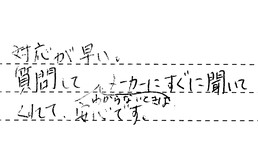 対応が早い。
質問して、メーカーにすぐに聞いて
わからないときは
くれて、安心です。